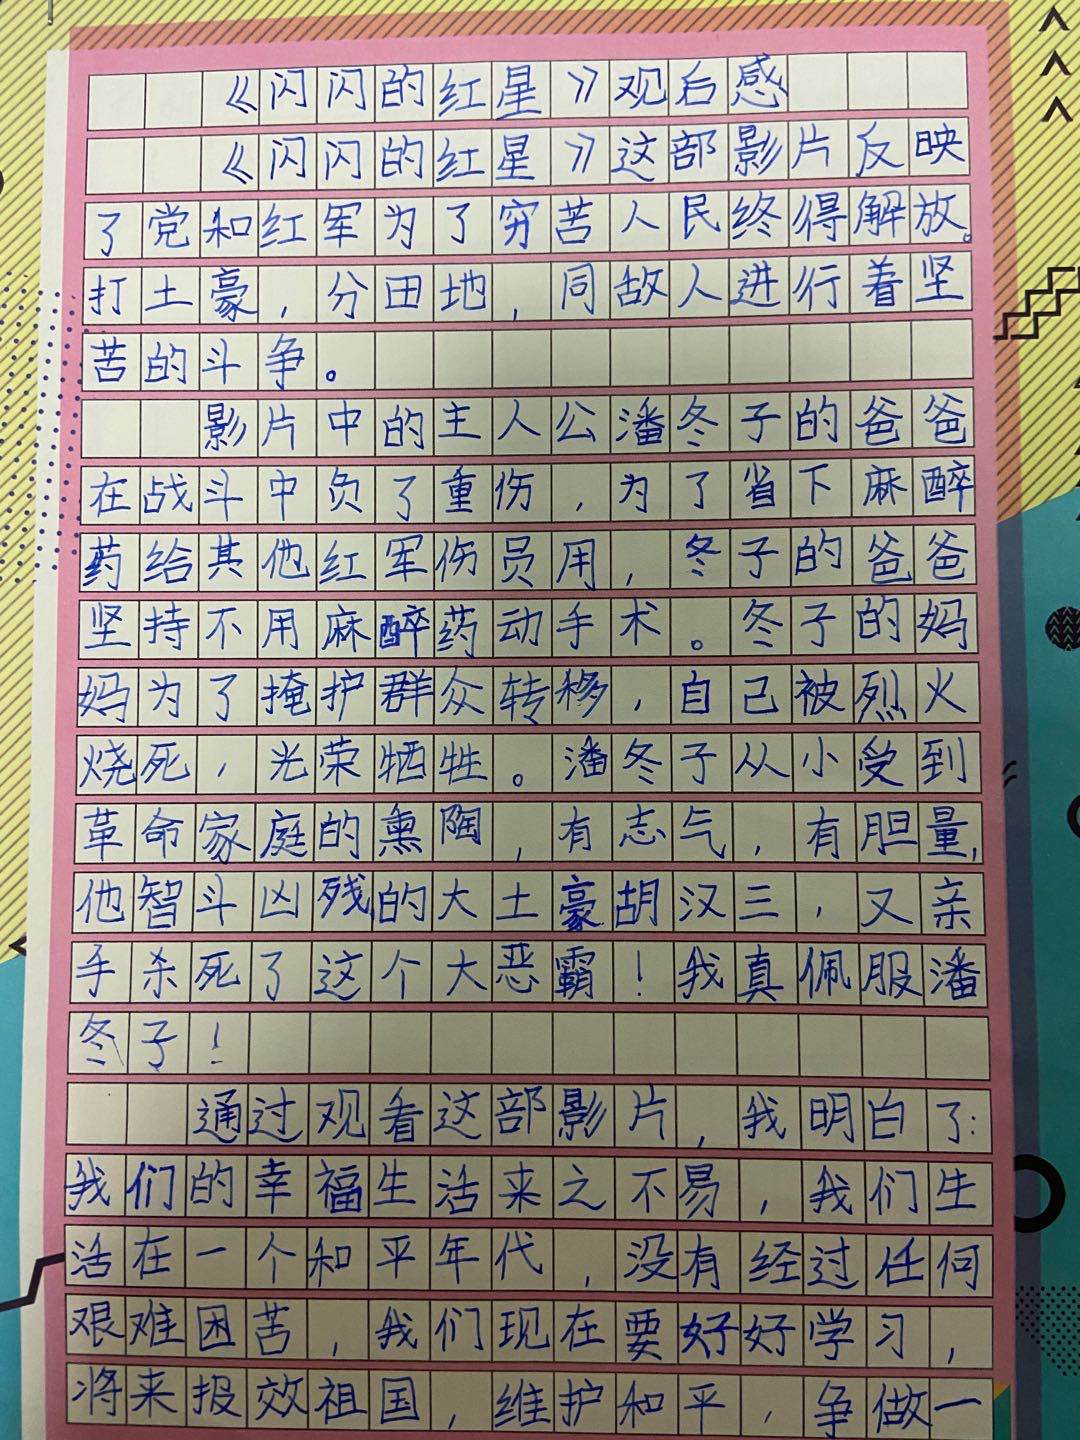 《闪闪的红星》观后感
《闪闪的红星》这部影片反映
了党和红军为了穷苦人民终得解放。
打土豪,分田地,同敌人进行着坚
苦的斗争。
影片中的主人公潘冬子的爸爸
在战斗中负了重伤,为了省下麻醉
药给其他红军伤员用,冬子的爸爸
坚持不用麻醉药动手术。冬子的妈
妈为了掩护群众转移,自己被烈火
烧死,光荣牺牲。潘冬子从小受到
革命家庭的熏陶,有志气,有胆量,
他智斗凶残的大土豪胡汉三,又亲
手杀死了这个大恶霸!我真佩服潘
冬子!
通过观看这部影片,我明白了:
我们的幸福生活来之不易,我们生
活在一个和平年代,没有经过任何
艰难困苦,我们现在要好好学习,
将来报效祖国,维护和平,争做一